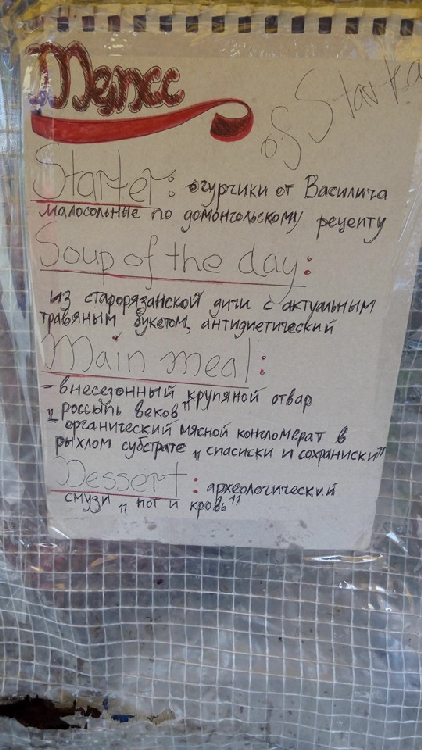 of Starka
Starter: огурчики от Василича
малосольные по домонгольскому рецепту
Soup of the day:
из старорязанской дичи с актуальным
травяным букетом, антидиетический
Main meal:
- внесезонный крупяной отвар
„россыпь веков"
- органический мясной конгломерат в
рыхлом субстрате „спасиски и сохраниски"
Dessert: археологический
смузи „пот и кровь"